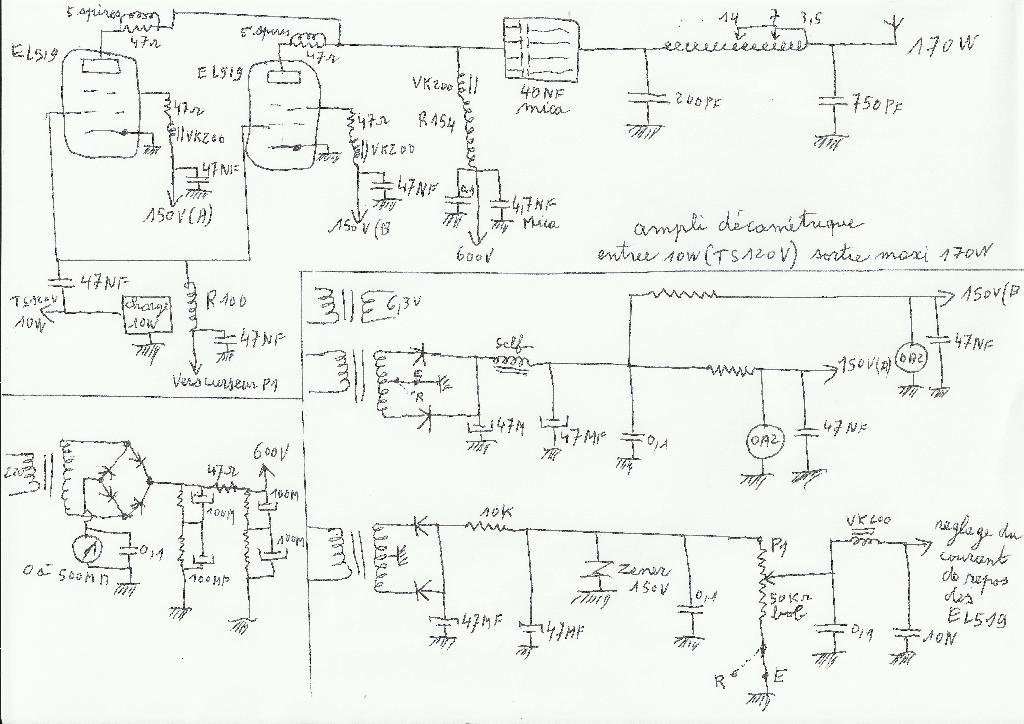 5 spires
47Ω
EL519
5 spires
47Ω
EL519
47Ω
VK200
47NF
150V(A)
47Ω
VK200
47NF
150V(B
VK200
R154
4,7NF
Mica
600V
40NF
mica
14 7 3,5
170W
200PF
750PF
ampli décamétrique
entrée 10W (TS120V) sortie maxi 170W
47NF
TS120V
10W
charge
10W
R100
47NF
Vers curseur P1
6,3V
self
R
47M
47MF
0,1
150V(B
0A2
47NF
150V(A)
0A2
47NF
220
47Ω
600V
100M
100M
100M
100MF
0,1
0 à 500MA
10K
47MF
47MF
Zener
150V
0,1
P1
50KΩ
bob
R
E
VK200
0,1
10N
réglage du
courant
de repos
des
EL519